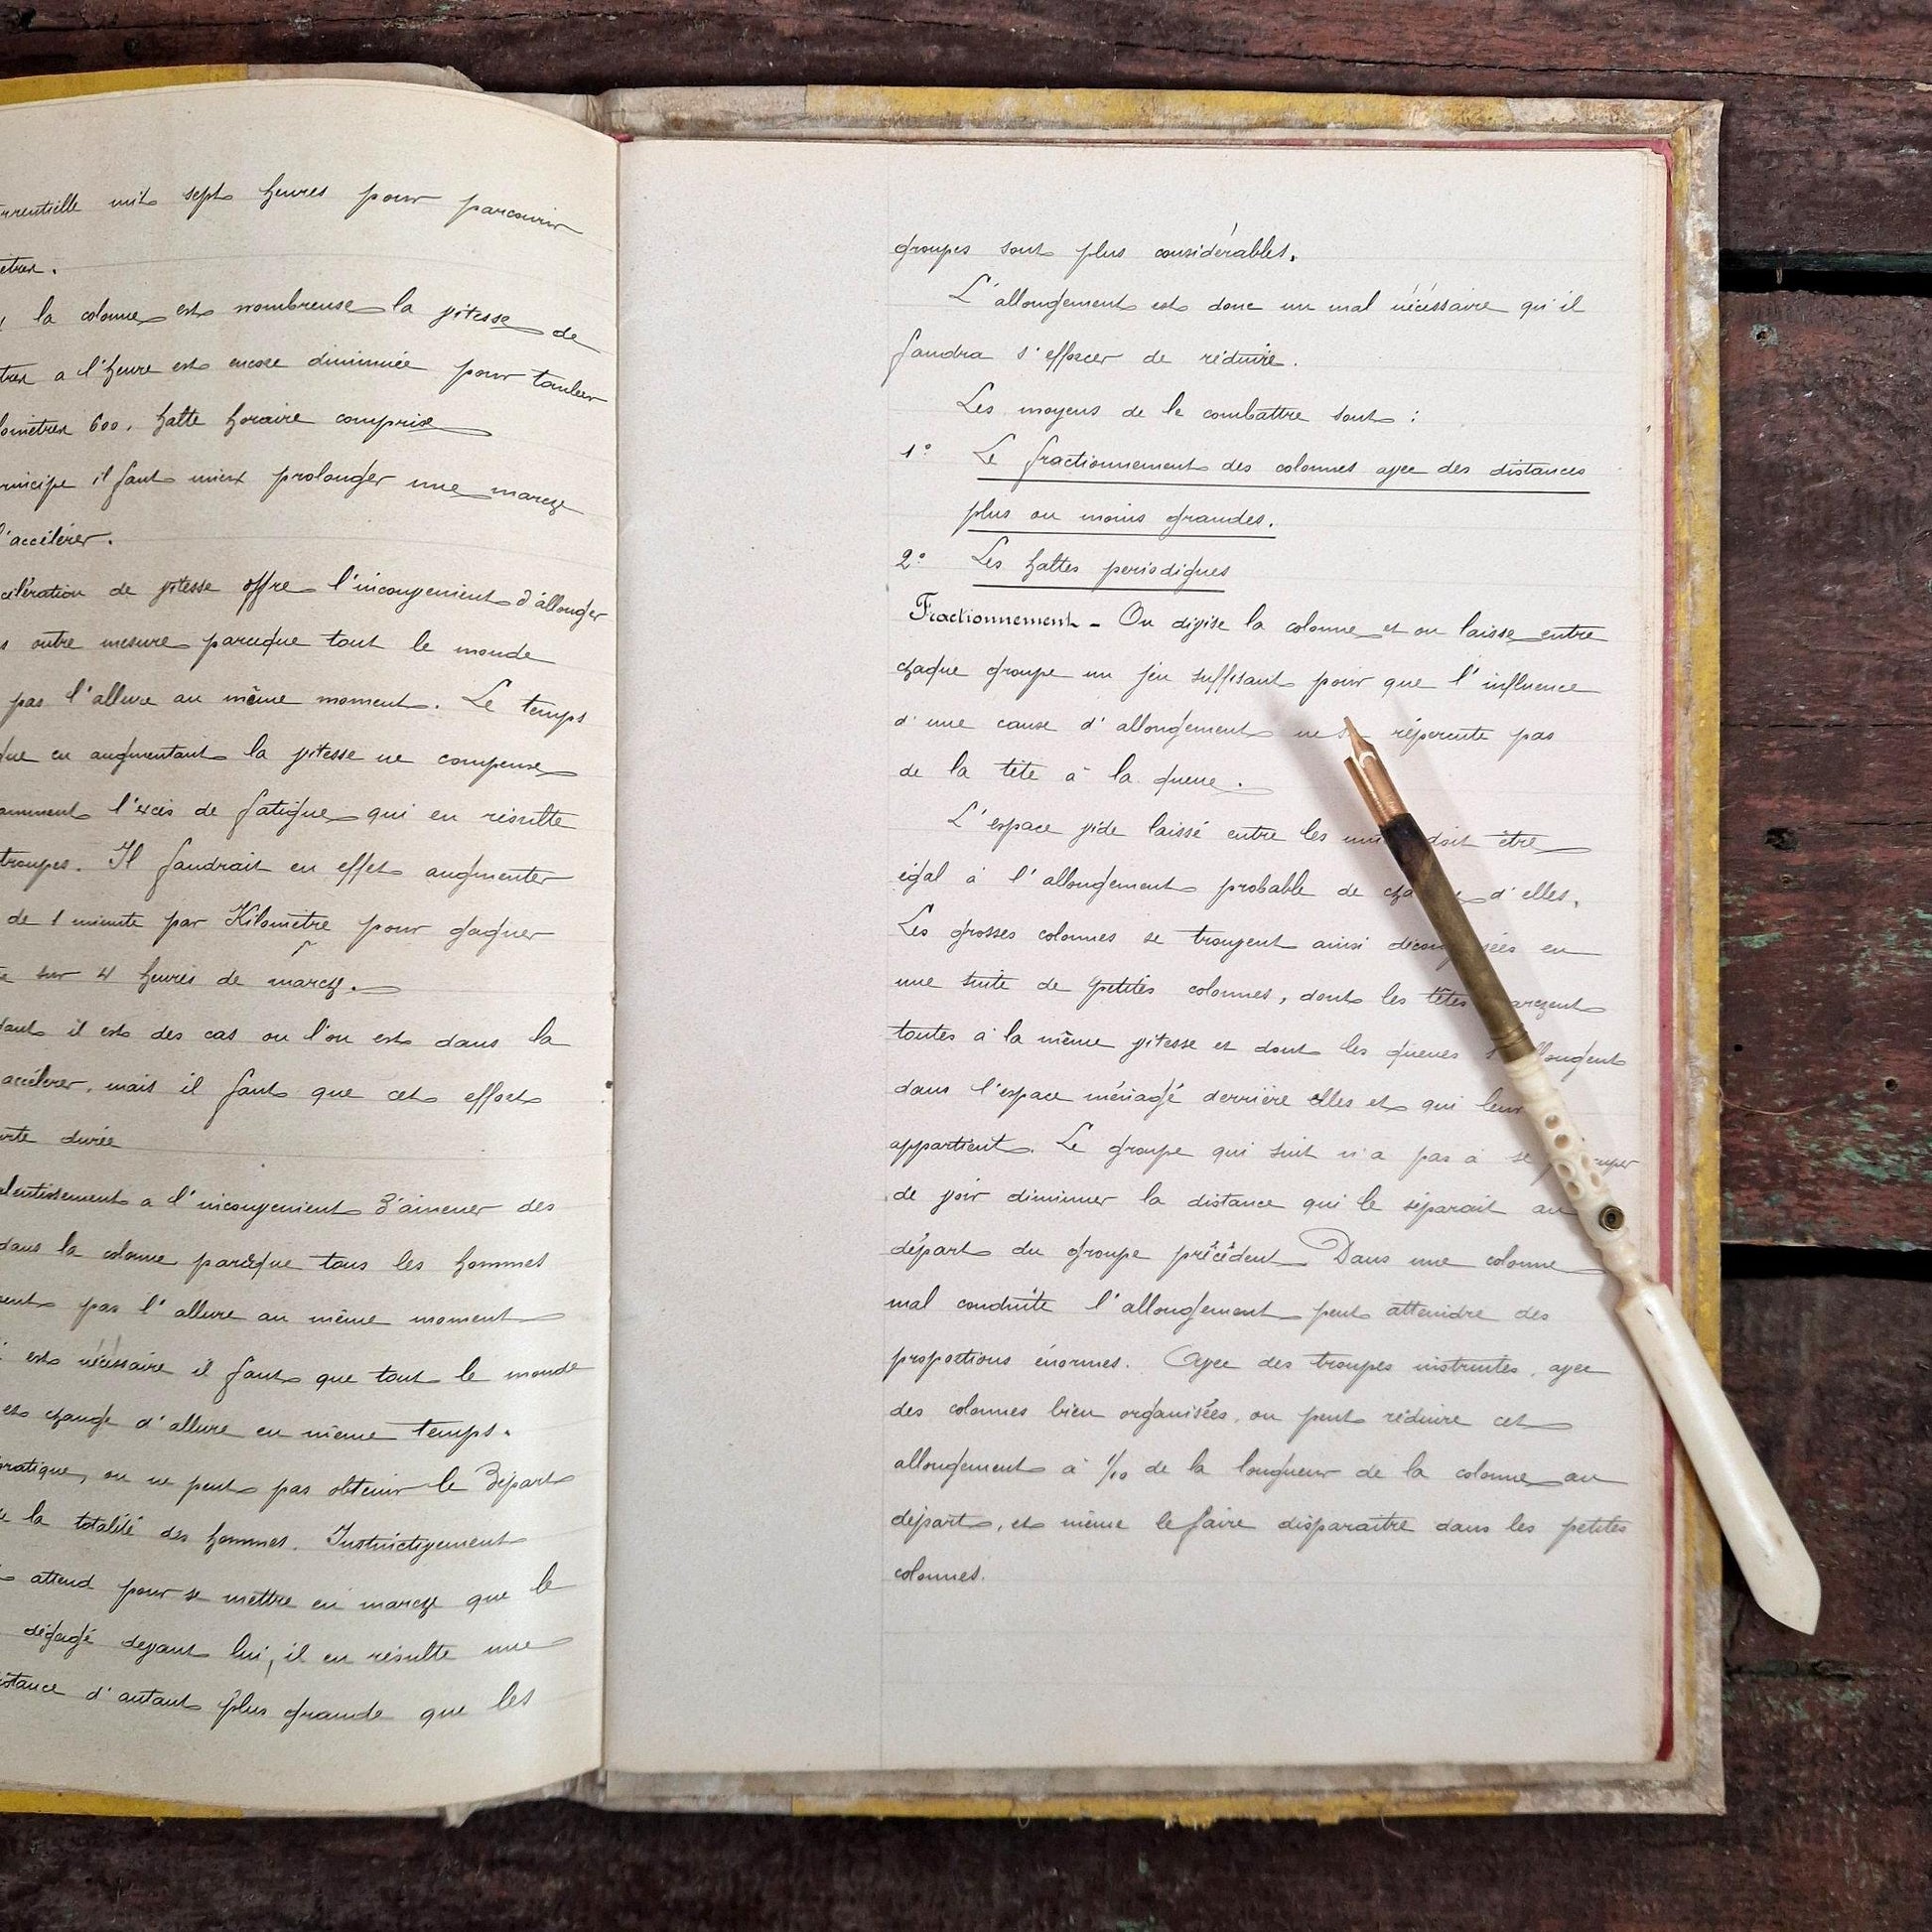 mit sept heures pour parcourir
la colonne est nombreuse la vitesse de
a l'heure est encore diminuée pour tomber
600, halte horaire comprise
il faut mieux prolonger une marche
l'accélérer.
de vitesse offre l'inconvenient d'allonger
outre mesure parceque tout le monde
pas l'allure au même moment. Le temps
en augmentant la vitesse ne compense
l'excès de fatigue qui en résulte
troupes. Il faudrait en effet augmenter
de 1 minute par Kilomètre pour gagner
sur 4 heures de marche.
il est des cas ou l'on est dans la
accélerer, mais il faut que cet effort
durée
a l'inconvenient d'amener des
dans la colonne parceque tous les hommes
pas l'allure au même moment
est nécéssaire il faut que tout le monde
et change d'allure en même temps.
pratique, on ne peut pas obtenir le départ
la totalité des hommes. Instinctivement
attend pour se mettre en marche que le
dégagé devant lui, il en résulte une
d'autant plus grande que les
groupes sont plus considérables.
L'allongement est donc un mal nécéssaire qu'il
faudra s'efforcer de réduire.
Les moyens de le combattre sont :
1° Le fractionnement des colonnes avec des distances
plus ou moins grandes.
2° Les haltes periodiques
Fractionnement - On divise la colonne et on laisse entre
chaque groupe un jeu suffisant pour que l'influence
d'une cause d'allongement ne se répercute pas
de la tête à la queue.
L'espace vide laissé entre les doit être
égal à l'allongement probable de d'elles.
Les grosses colonnes se trouvent ainsi en
une suite de petites colonnes, dont les têtes
toutes à la même vitesse et dont les queues
dans l'espace ménagé derrière elles et qui leur
appartient. Le groupe qui suit n'a pas à se
de voir diminuer la distance qui le séparait au
départ du groupe précédent Dans une colonne
mal conduite l'allongement peut atteindre des
proportions énormes. Avec des troupes instruites, avec
des colonnes bien organisées, on peut réduire cet
allongement à 1/10 de la longueur de la colonne au
départ, et même le faire disparaître dans les petites
colonnes.